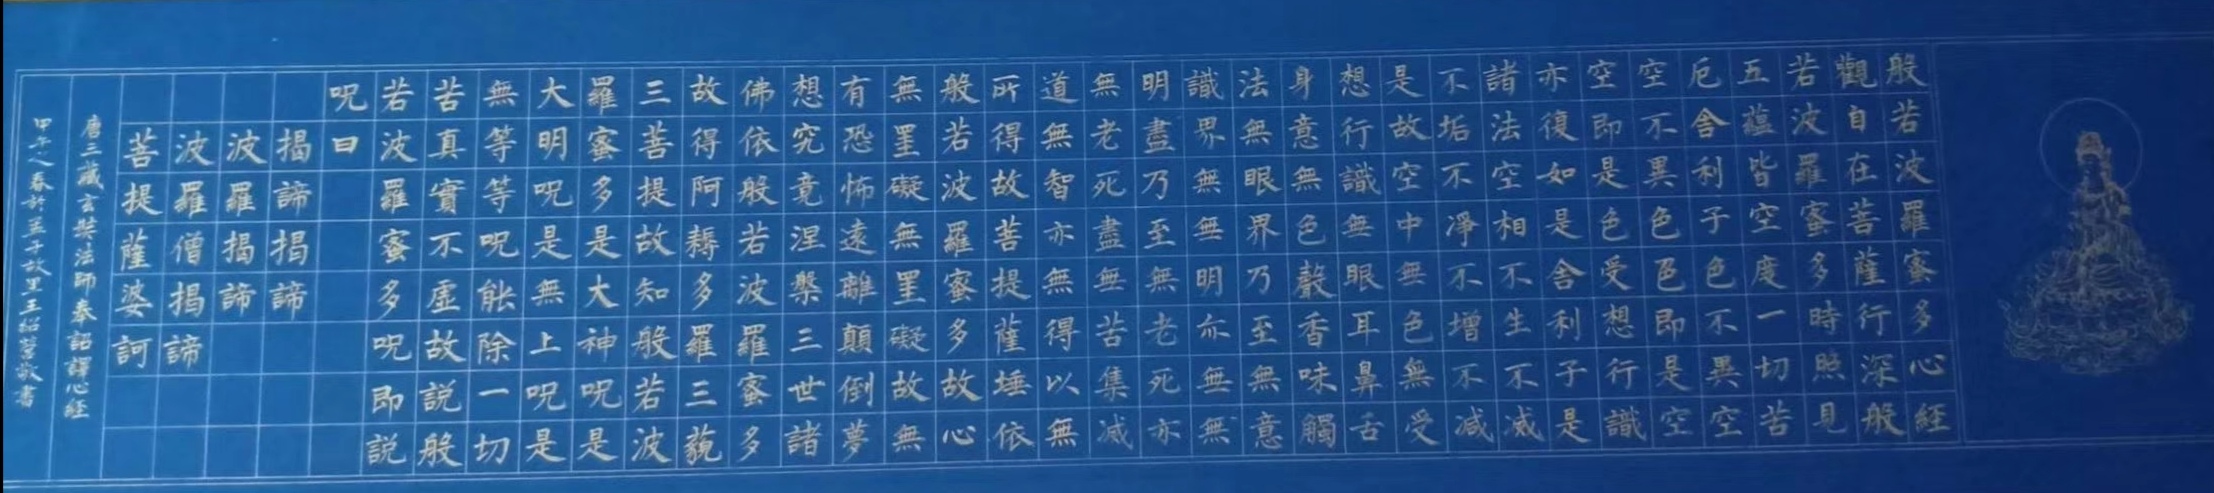 般若波羅蜜多心經
觀自在菩薩行深般
若波羅蜜多時照見
五蘊皆空度一切苦
厄舍利子色不異空
空不異色色即是空
空即是色受想行識
亦復如是舍利子是
諸法空相不生不滅
不垢不淨不增不減
是故空中無色無受
想行識無眼耳鼻舌
身意無色聲香味觸
法無眼界乃至無意
識界無無明亦無無
明盡乃至無老死亦
無老死盡無苦集滅
道無智亦無得以無
所得故菩提薩埵依
般若波羅蜜多故心
無罣礙無罣礙故無
有恐怖遠離顛倒夢
想究竟涅槃三世諸
佛依般若波羅蜜多
故得阿耨多羅三藐
三菩提故知般若波
羅蜜多是大神呪是
大明呪是無上呪是
無等等呪能除一切
苦真實不虛故説般
若波羅蜜多呪即説
呪曰
揭諦揭諦
波羅揭諦
波羅僧揭諦
菩提薩婆訶
唐三藏玄奘法師奉詔譯心經
甲午春於孟子故里王紹敬書